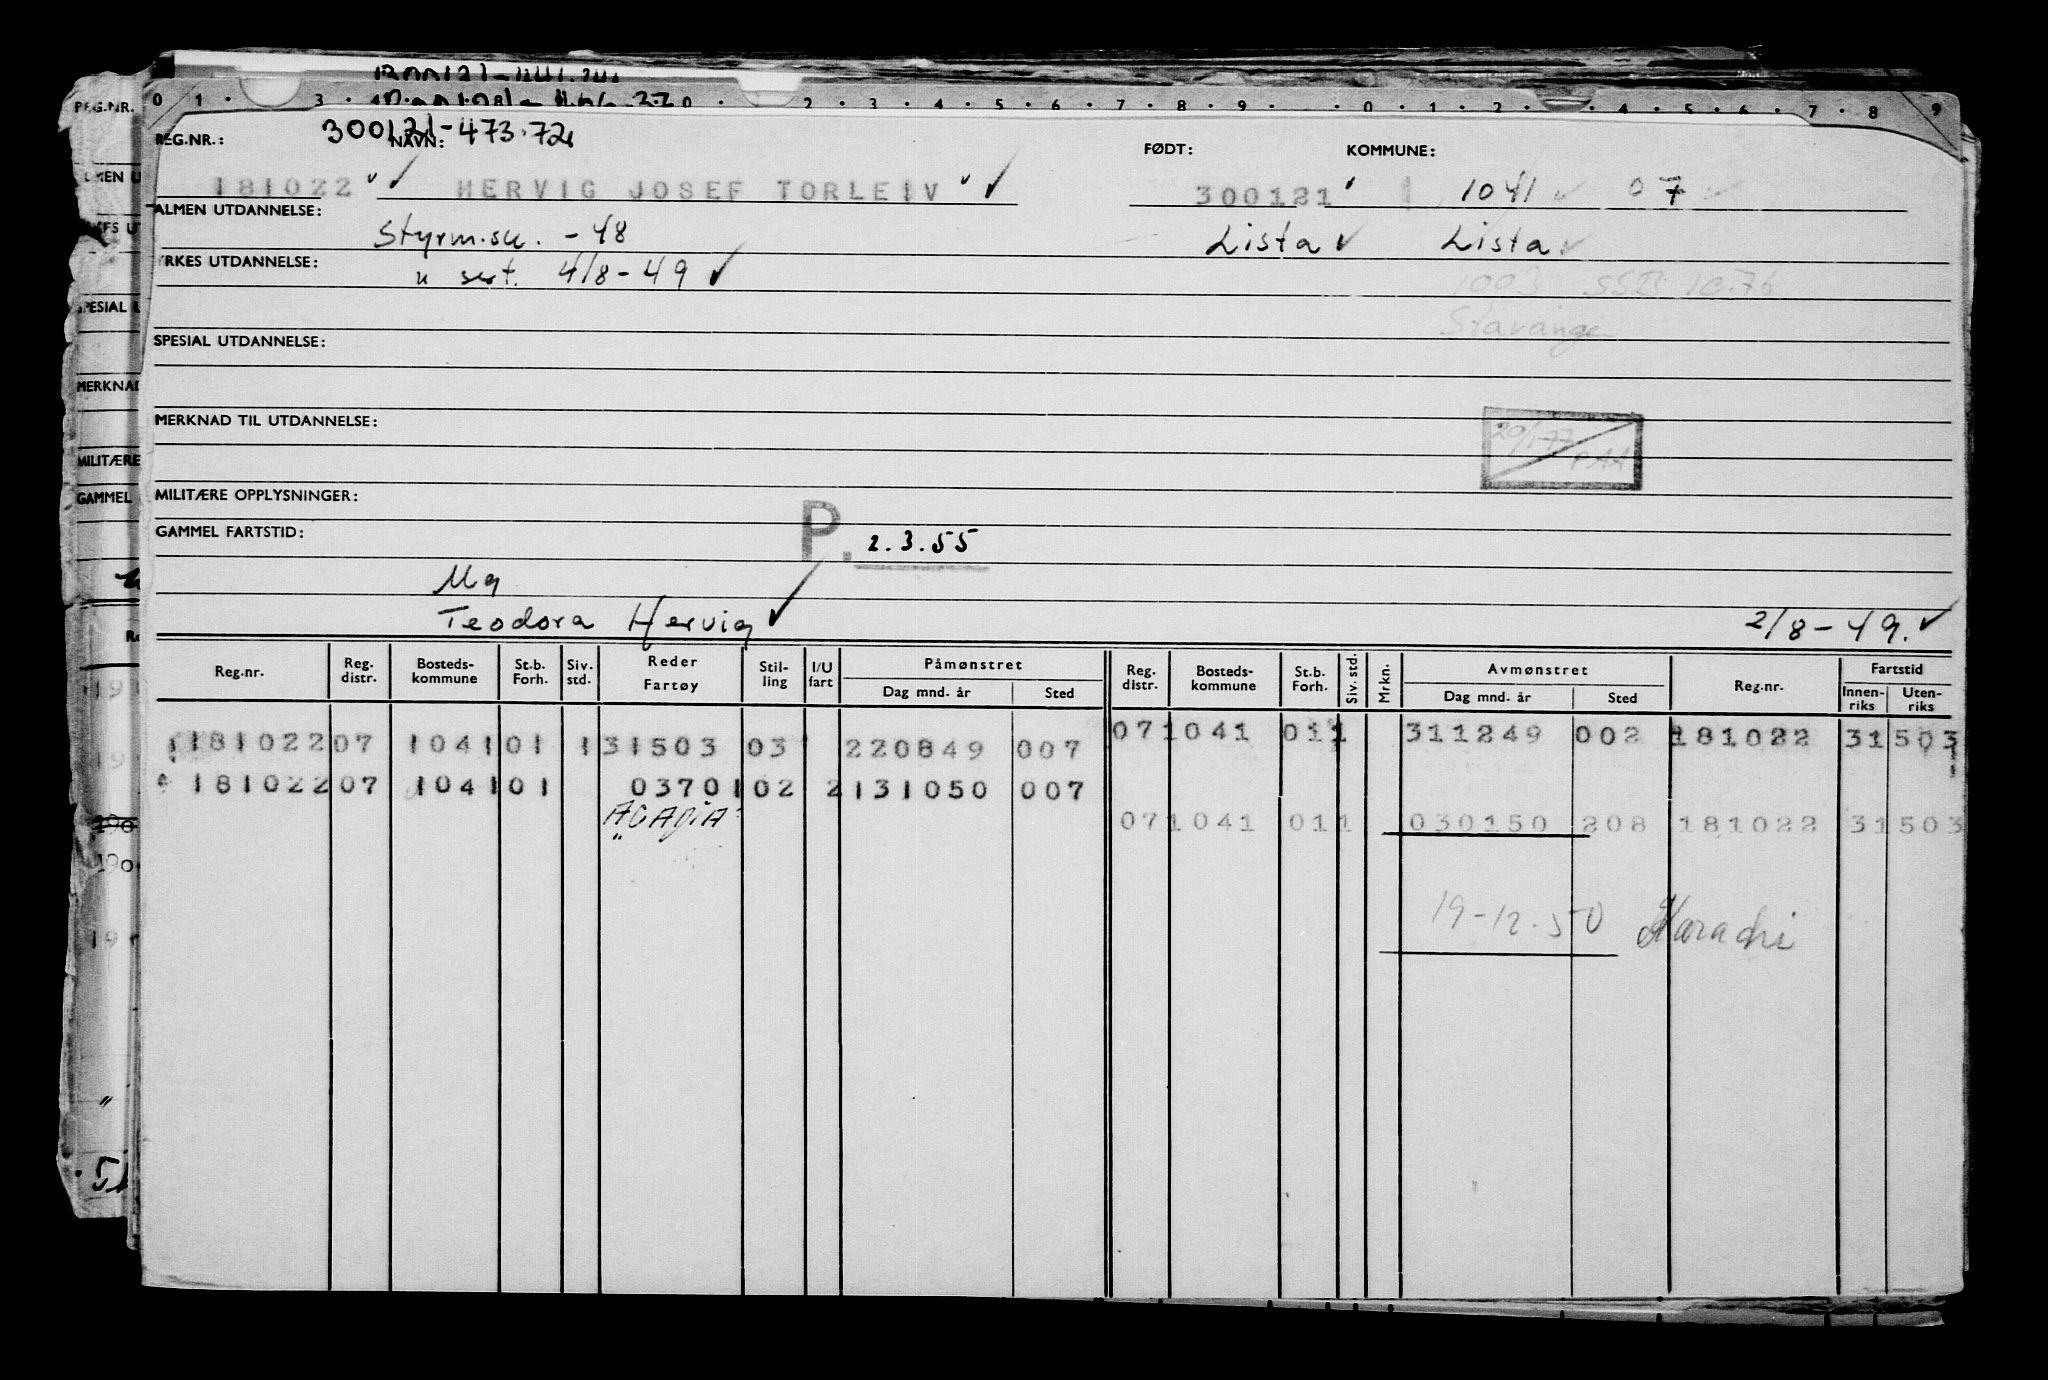 300121-473.72
REG.NR.: NAVN: FØDT: KOMMUNE:
181022 HERVIG JOSEF TORLEIV 300121 1041 07
ALMEN UTDANNELSE: Styrm.sk. - 48 Lista Lista
YRKES UTDANNELSE: u sert. 4/8-49
1003 10.76
Stavanger
SPESIAL UTDANNELSE:
MERKNAD TIL UTDANNELSE:
20/1-77
PAA
MILITÆRE OPPLYSNINGER:
GAMMEL FARTSTID:
P. 2.3.55
Mg
Teodora Hervig 2/8-49.
Reg.nr. Reg. distr. Bosteds-kommune St.b. Forh. Siv. std. Reder Fartøy Stil-ling I/U fart Påmønstret Dag mnd. år Sted Reg. distr. Bosteds-kommune St.b. Forh. Siv. std. Mrkn. Avmønstret Dag mnd. år Sted Reg.nr. Fartstid Innen-riks Uten-riks
181022 07 1041 01 1 31503 03 220849 007 07 1041 01 1 311249 002 181022 31503
181022 07 1041 01 03701 02 2 131050 007
ACADIA 07 1041 01 1 030150 208 181022 31503
19-12.50 Karachi